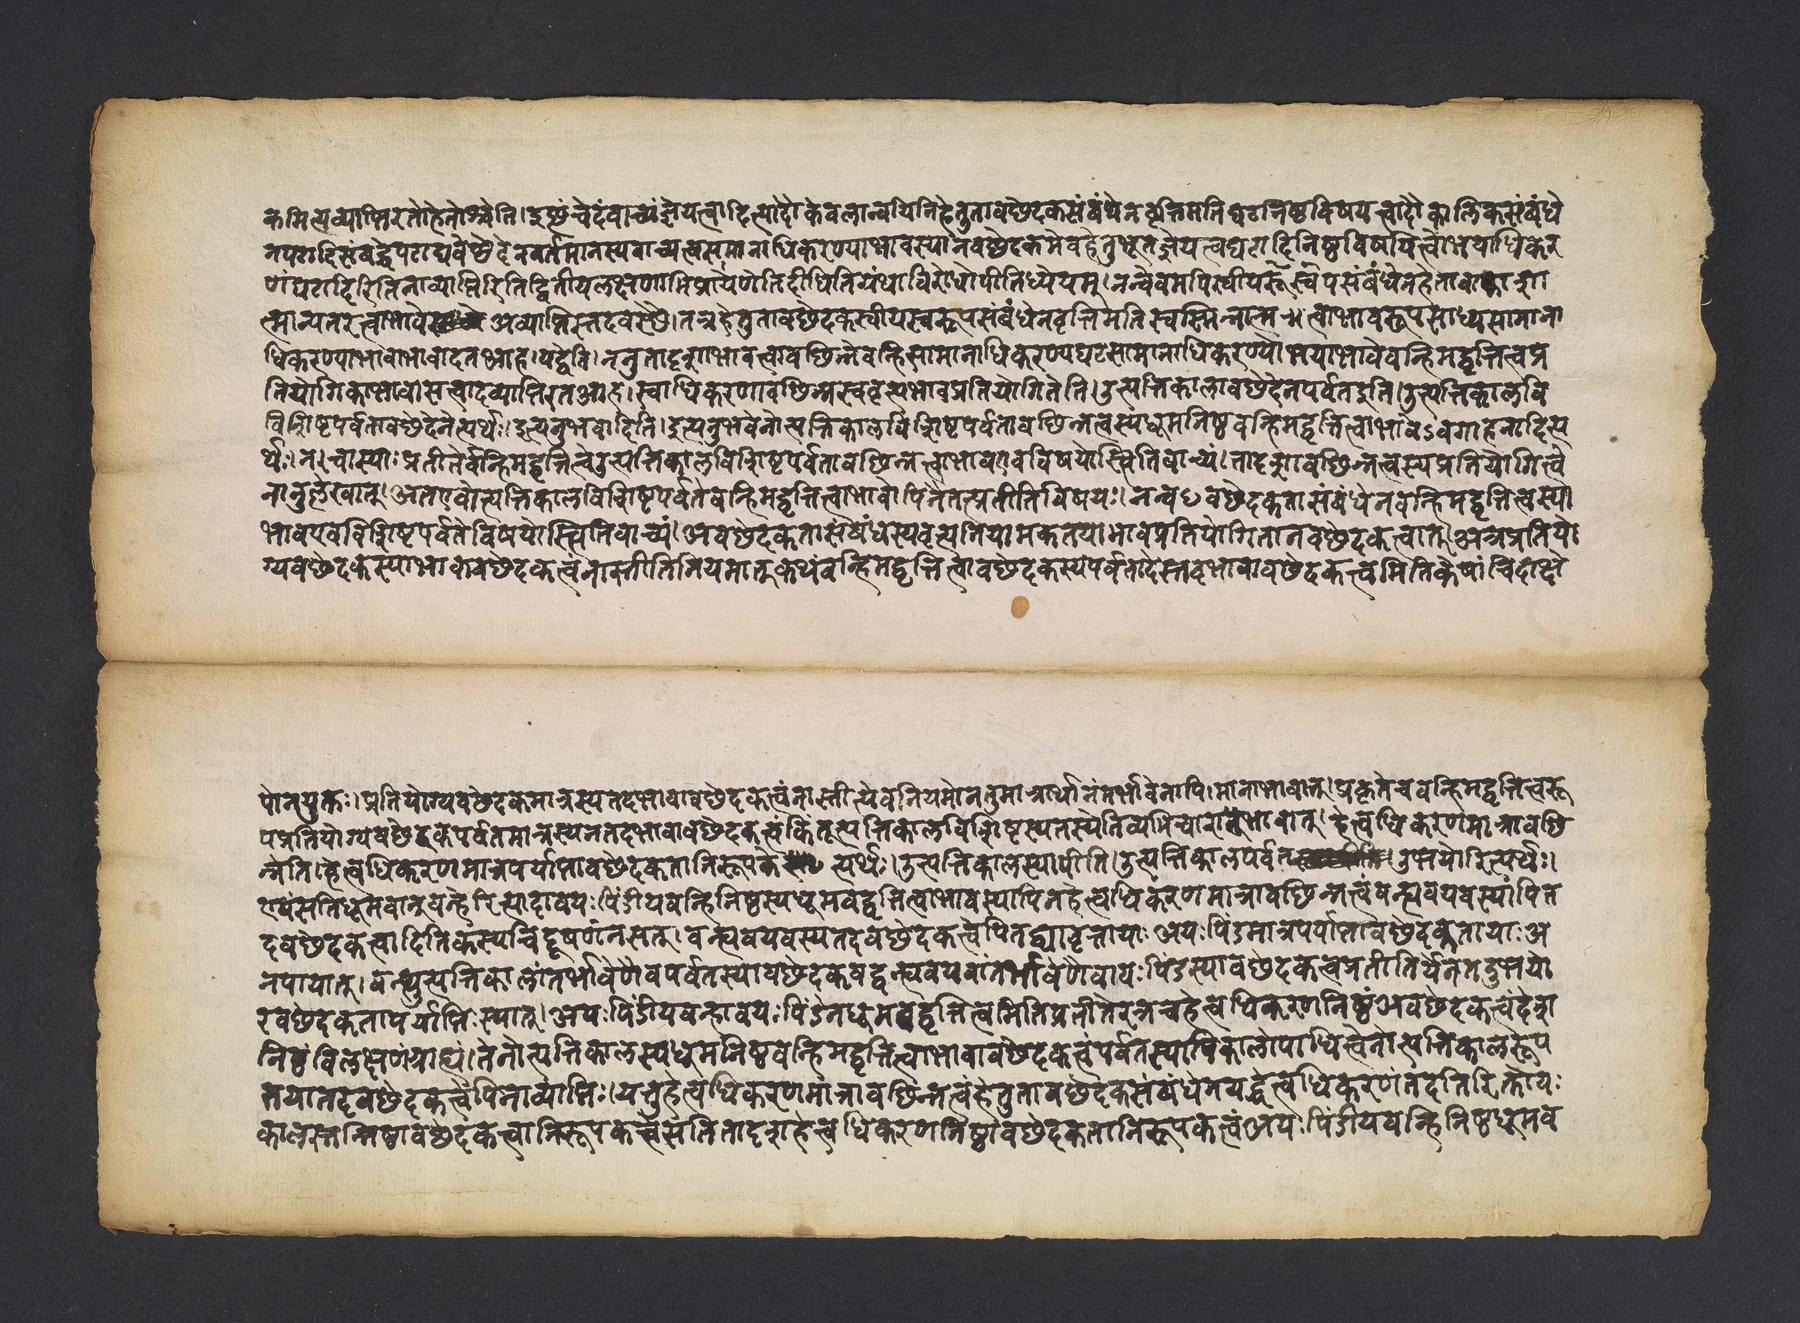 कमित्यव्याप्तिरतोहेतोश्चेति।इत्थंचेदंवाच्यंज्ञेयत्वादित्यादौकेवलान्वयिनिहेतुतावछेदकसंबंधेनवृत्तिमतिघटनिष्ठविषयत्वादौकालिकसंबंधे
नपटादिसंबद्धपटाद्यवछेदेनवर्तमानस्यवाच्यत्वसमानाधिकरण्याभावस्यानवछेदकमेवहेतुभूतज्ञेयत्वघटादिनिष्ठविषयित्वोभयाधिकर
णंघटादिरितिनाव्याप्तिरितिद्वितीयलक्षणाभिप्रायेणेतिदीधितिग्रंथाविरोधोपीतिध्येयम्।नन्वेवमपिस्वीयस्वरूपसंबंधेनहेतावाकाशा
त्मान्यतरत्वाभावे अव्याप्तिस्तदवस्थै।तत्रहेतुतावछेदकस्वीयस्वरूपसंबंधेनवृत्तिमतिस्वस्मिन्नात्मत्वाभावरूपसाध्यसामाना
धिकरण्याभावाभावादतआह।यद्वेति।ननुतादृशाभावत्वावछिन्नेवन्हिसामानाधिकरण्यघटसामानाधिकरण्योभयाभावेवन्हिमद्वृत्तित्वप्र
तियोगिकाभावासत्वादव्याप्तिरतआह।स्वाधिकरणावछिन्नस्ववृत्त्यभावप्रतियोगितेति।उत्पत्तिकालावछेदेनपर्वतइति।उत्पत्तिकालवि
विशिष्टपर्वतावछेदेनेत्यर्थः।इत्यनुभवादिति।इत्यनुभवेनोत्पत्तिकालविशिष्टपर्वतावछिन्नत्वस्यधूमनिष्ठवन्हिमद्वृत्तित्वाभावेऽवगाहनादित्य
र्थः।नचास्याःप्रतीतेर्वन्हिमद्वृत्तित्वउत्पत्तिकालविशिष्टपर्वतावछिन्नत्वाभावएवविषयोस्त्वितिवाच्यं।तादृशावछिन्नत्वस्यप्रतियोगित्वे
नानुल्लेखात्।अतएवोत्पत्तिकालविशिष्टपर्वतेवन्हिमद्वृत्तित्वाभावोपिनैतत्प्रतीतिविषयः।नन्ववछेदकतासंबंधेनवन्हिमद्वृत्तित्वस्या
भावएवविशिष्टपर्वतेविषयोस्त्वितिवाच्यं।अवछेदकतासंबंधस्यवृत्त्यनियामकतयाभावप्रतियोगितानवछेदकत्वात्।अथप्रतियो
ग्यवछेदकस्याभावावछेदकत्वंनास्तीतिनियमात्कथंवन्हिमद्वृत्तित्वावछेदकस्यपर्वतादेस्तदभावावछेदकत्वमितिकेषांचिदाक्षे
पोनयुक्तः।प्रतियोग्यवछेदकमात्रस्यतदभावावछेदकत्वंनास्तीत्येवनियमोनतुमात्रार्थानंतर्भावेनापि।मानाभावात्।प्रकृतेचवन्हिमद्वृत्तित्वरू
पप्रतियोग्यवछेदकेपर्वतमात्रस्यनतदाभावावछेदकत्वंकिंतूत्पत्तिकालविशिष्टस्यतस्येतिव्यभिचाराभावात्।हेत्वधिकरणमात्रावछि
न्नेति।हेत्वधिकरणमात्रपर्याप्तावछेदकतानिरूपकेत्यर्थः।उत्पत्तिकालस्यापीति।उत्पत्तिकालपर्वतउभयोरित्यर्थः।
एवंसतिधूमवान्वन्हेरित्यादावयःपिंडीयवन्हिनिष्ठस्यधूमवद्वृत्तित्वाभावस्यापिनहेत्वधिकरणमात्रावछिन्नत्वंवन्ह्यवयवस्यापित
दवछेदकत्वादितिकस्यचिद्दूषणंनसत्।वन्ह्यवयवस्यतदवछेदकत्वेपितद्व्यावृत्तायाःअयःपिंडमात्रपर्याप्तावछेदकतायाःअ
नपायात्।वन्ह्युत्पत्तिकालांतर्भावेणैवपर्वतस्यावछेदकवद्वन्ह्यवयवांतर्भावेणैवायःपिंडस्यावछेदकत्वप्रतीतिर्येनतदुभयो
रवछेदकतापर्याप्तिःस्यात्।अयःपिंडीयवन्हावयःपिंडेनधूमवद्वृत्तित्वमितिप्रतीतेरत्रचहेत्वधिकरणनिष्ठंअवछेदकत्वंदेश
निष्ठंविलक्षणंग्राह्यं।तेनोत्पत्तिकालस्यधूमनिष्ठवन्हिमद्वृत्तित्वाभावावछेदकत्वंपर्वतस्यापिकालोपाधित्वेनोत्पत्तिकालरूप
तयातदवछेदकत्वेपिनाव्याप्तिः।यत्तुहेत्वधिकरणमात्रावछिन्नत्वंहेतुतावछेदकसंबंधेनयद्धेत्वधिकरणंतदतिरिक्तोयः
कालस्तन्निष्ठावछेदकत्वानिरूपकत्वेसतितादृशहेत्वधिकरणनिष्ठावछेदकतानिरूपकत्वंअयःपिंडीयवन्हिनिष्ठधूमव